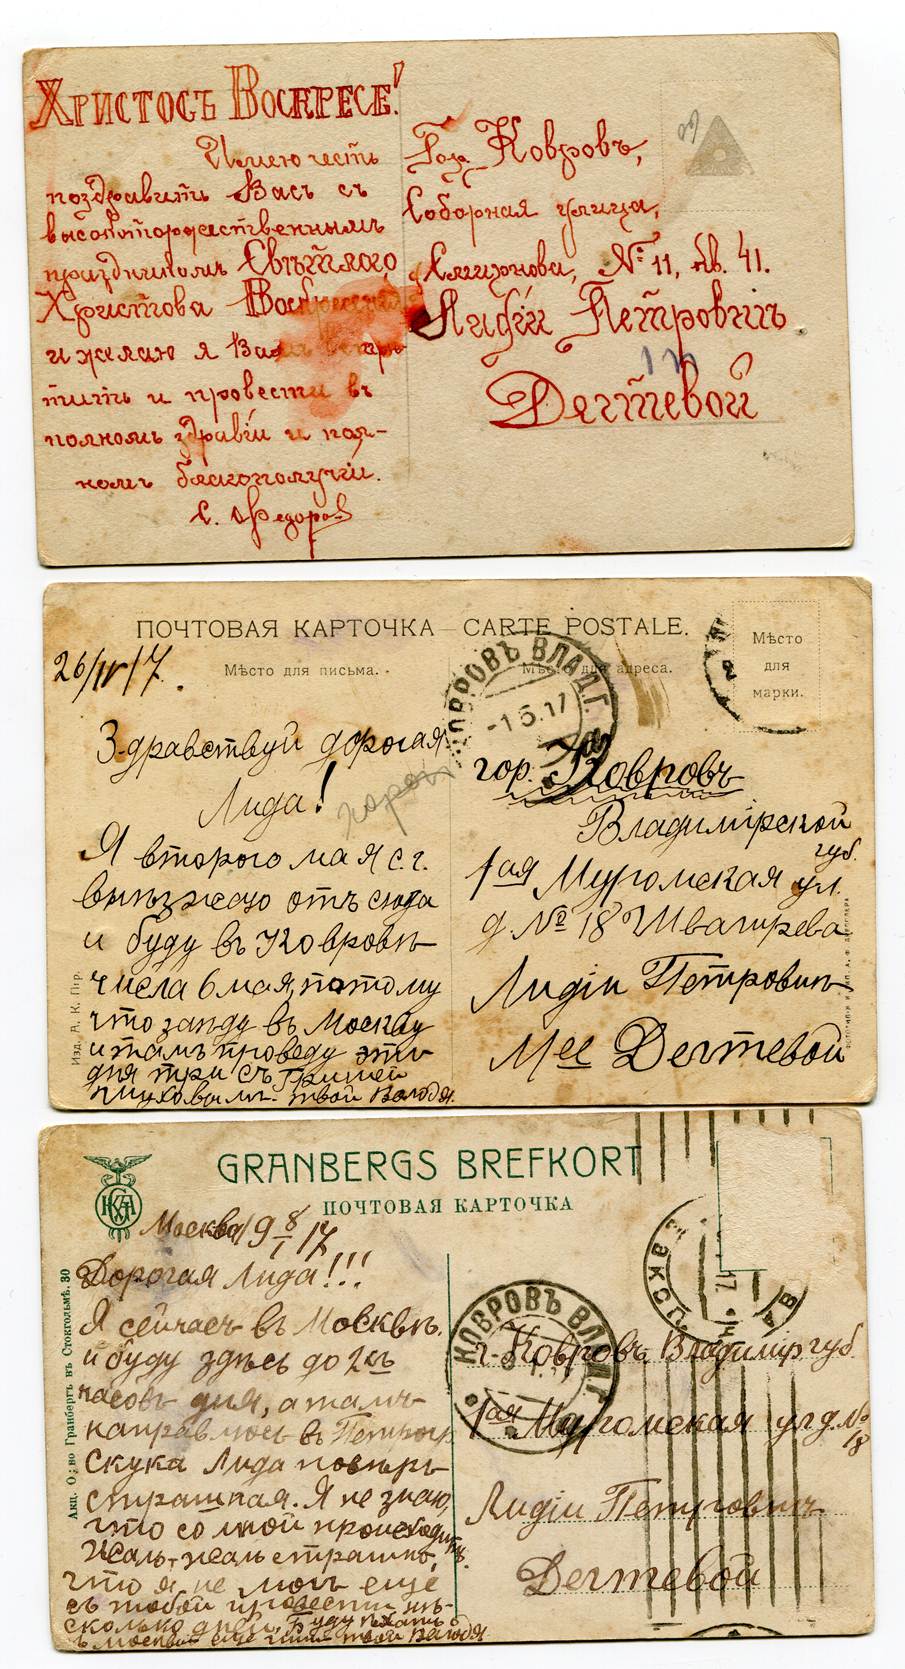 Христосъ Воскресе!
Имею честь
поздравить Васъ съ
высокоторжественнымъ
праздникомъ Свѣтлого
Христова Воскресения
и желаю я Вамъ встрѣ-
тить и провести въ
полномъ здравіи и пол-
номъ благополучіи.
С. Федоровъ
Гор. Ковровъ,
Соборная улица,
Смирнова, № 11, кв. 41.
Лидіи Петровнѣ
Дегтевой
ПОЧТОВАЯ КАРТОЧКА — CARTE POSTALE.
26/IV 17.
Мѣсто для письма.
Мѣсто для адреса.
Мѣсто
для
марки.
КОВРОВЪ ВЛАД.Г.
-1.5.17
Здравствуй дорогая
Лида!
Я второго мая с. г.
выѣзжаю отъ сюда
и буду въ Ковровѣ
числа 6 мая, потому
что заѣду въ Москву
и тамъ проведу эти
дня три съ Гришей
твой Володя.
гор. Ковровъ
Владимірской
губ.
1ая Муромская ул.
д. № 18 Швагирева
Лидіи Петровнѣ
М-ее Дегтевой
Изд. Д. К. Пгр.
GRANBERGS BREFKORT
ПОЧТОВАЯ КАРТОЧКА
Москва 19 8/I 17
Дорогая Лида!!!
Я сейчасъ въ Москвѣ.
и буду здѣсь до 2хъ
часовъ дня, а тамъ
направлюсь въ Петрогр.
скука Лида повѣрь
страшная. Я не знаю,
что со мной происходитъ
Жаль, жаль страшно,
что я не могъ еще
съ тобой провести нѣ-
сколько дней. Буду
въ Москвѣ еще твой Володя
Акц. О-во Гранбергъ въ Стокгольмѣ. 30
КОВРОВЪ ВЛАД.Г.
г. Ковровъ Владимір губ.
1ая Муромская ул д. №
18
Лидіи Петровнѣ
Дегтевой